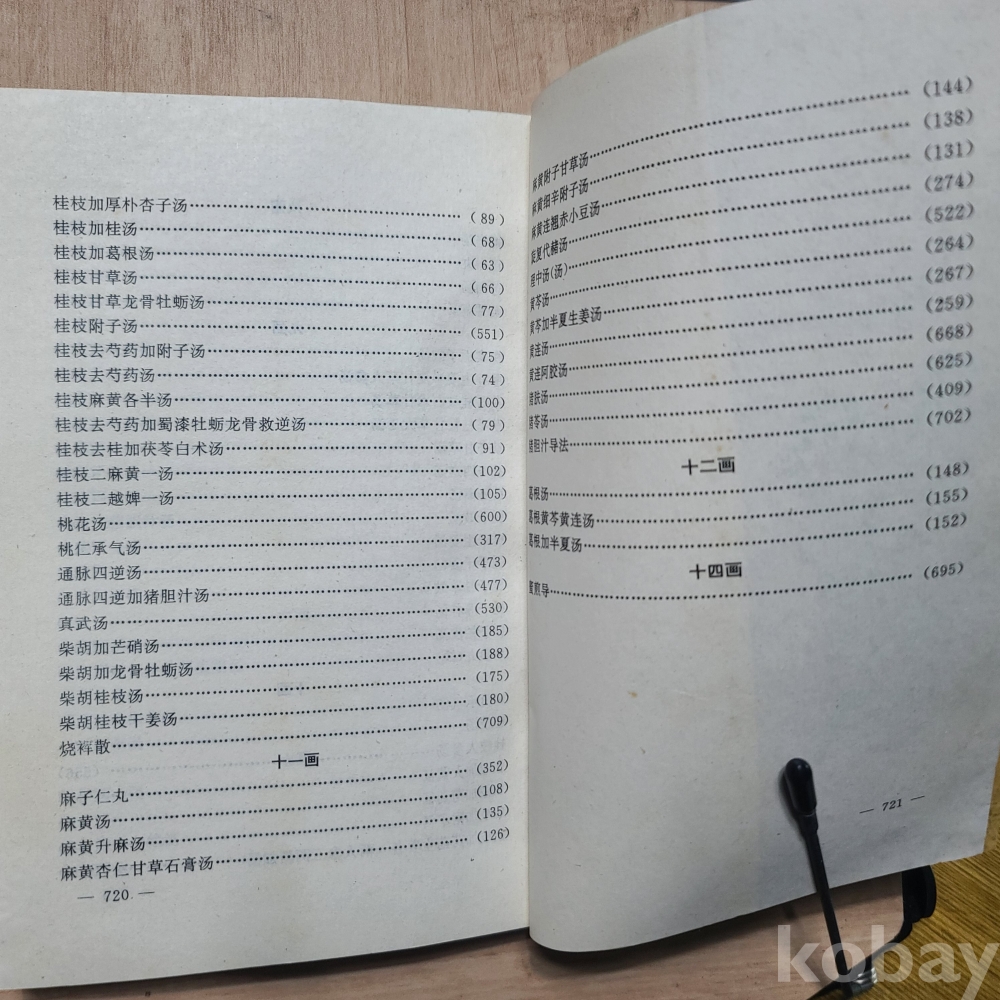 桂枝加厚朴杏子汤……(89)
桂枝加桂汤……(68)
桂枝加葛根汤……(63)
桂枝甘草汤……(66)
桂枝甘草龙骨牡蛎汤……(77)
桂枝附子汤……(551)
桂枝去芍药加附子汤……(75)
桂枝去芍药汤……(74)
桂枝麻黄各半汤……(100)
桂枝去芍药加蜀漆牡蛎龙骨救逆汤……(79)
桂枝去桂加茯苓白术汤……(91)
桂枝二麻黄一汤……(102)
桂枝二越婢一汤……(105)
桃花汤……(600)
桃仁承气汤……(317)
通脉四逆汤……(473)
通脉四逆加猪胆汁汤……(477)
真武汤……(530)
柴胡加芒硝汤……(185)
柴胡加龙骨牡蛎汤……(188)
柴胡桂枝汤……(175)
柴胡桂枝干姜汤……(180)
烧裈散……(709)
十一画
麻子仁丸……(352)
麻黄汤……(108)
麻黄升麻汤……(135)
麻黄杏仁甘草石膏汤……(126)
— 720 —
麻黄附子甘草汤……(144)
麻黄细辛附子汤……(138)
麻黄连翘赤小豆汤……(131)
旋夏代赭汤……(274)
理中汤(汤)……(522)
黄芩汤……(264)
黄芩加半夏生姜汤……(267)
黄连汤……(259)
黄连阿胶汤……(668)
猪肤汤……(625)
猪苓汤……(409)
猪胆汁导法……(702)
十二画
葛根汤……(148)
葛根黄芩黄连汤……(155)
葛根加半夏汤……(152)
十四画
蜜煎导……(695)
— 721 —
kobay